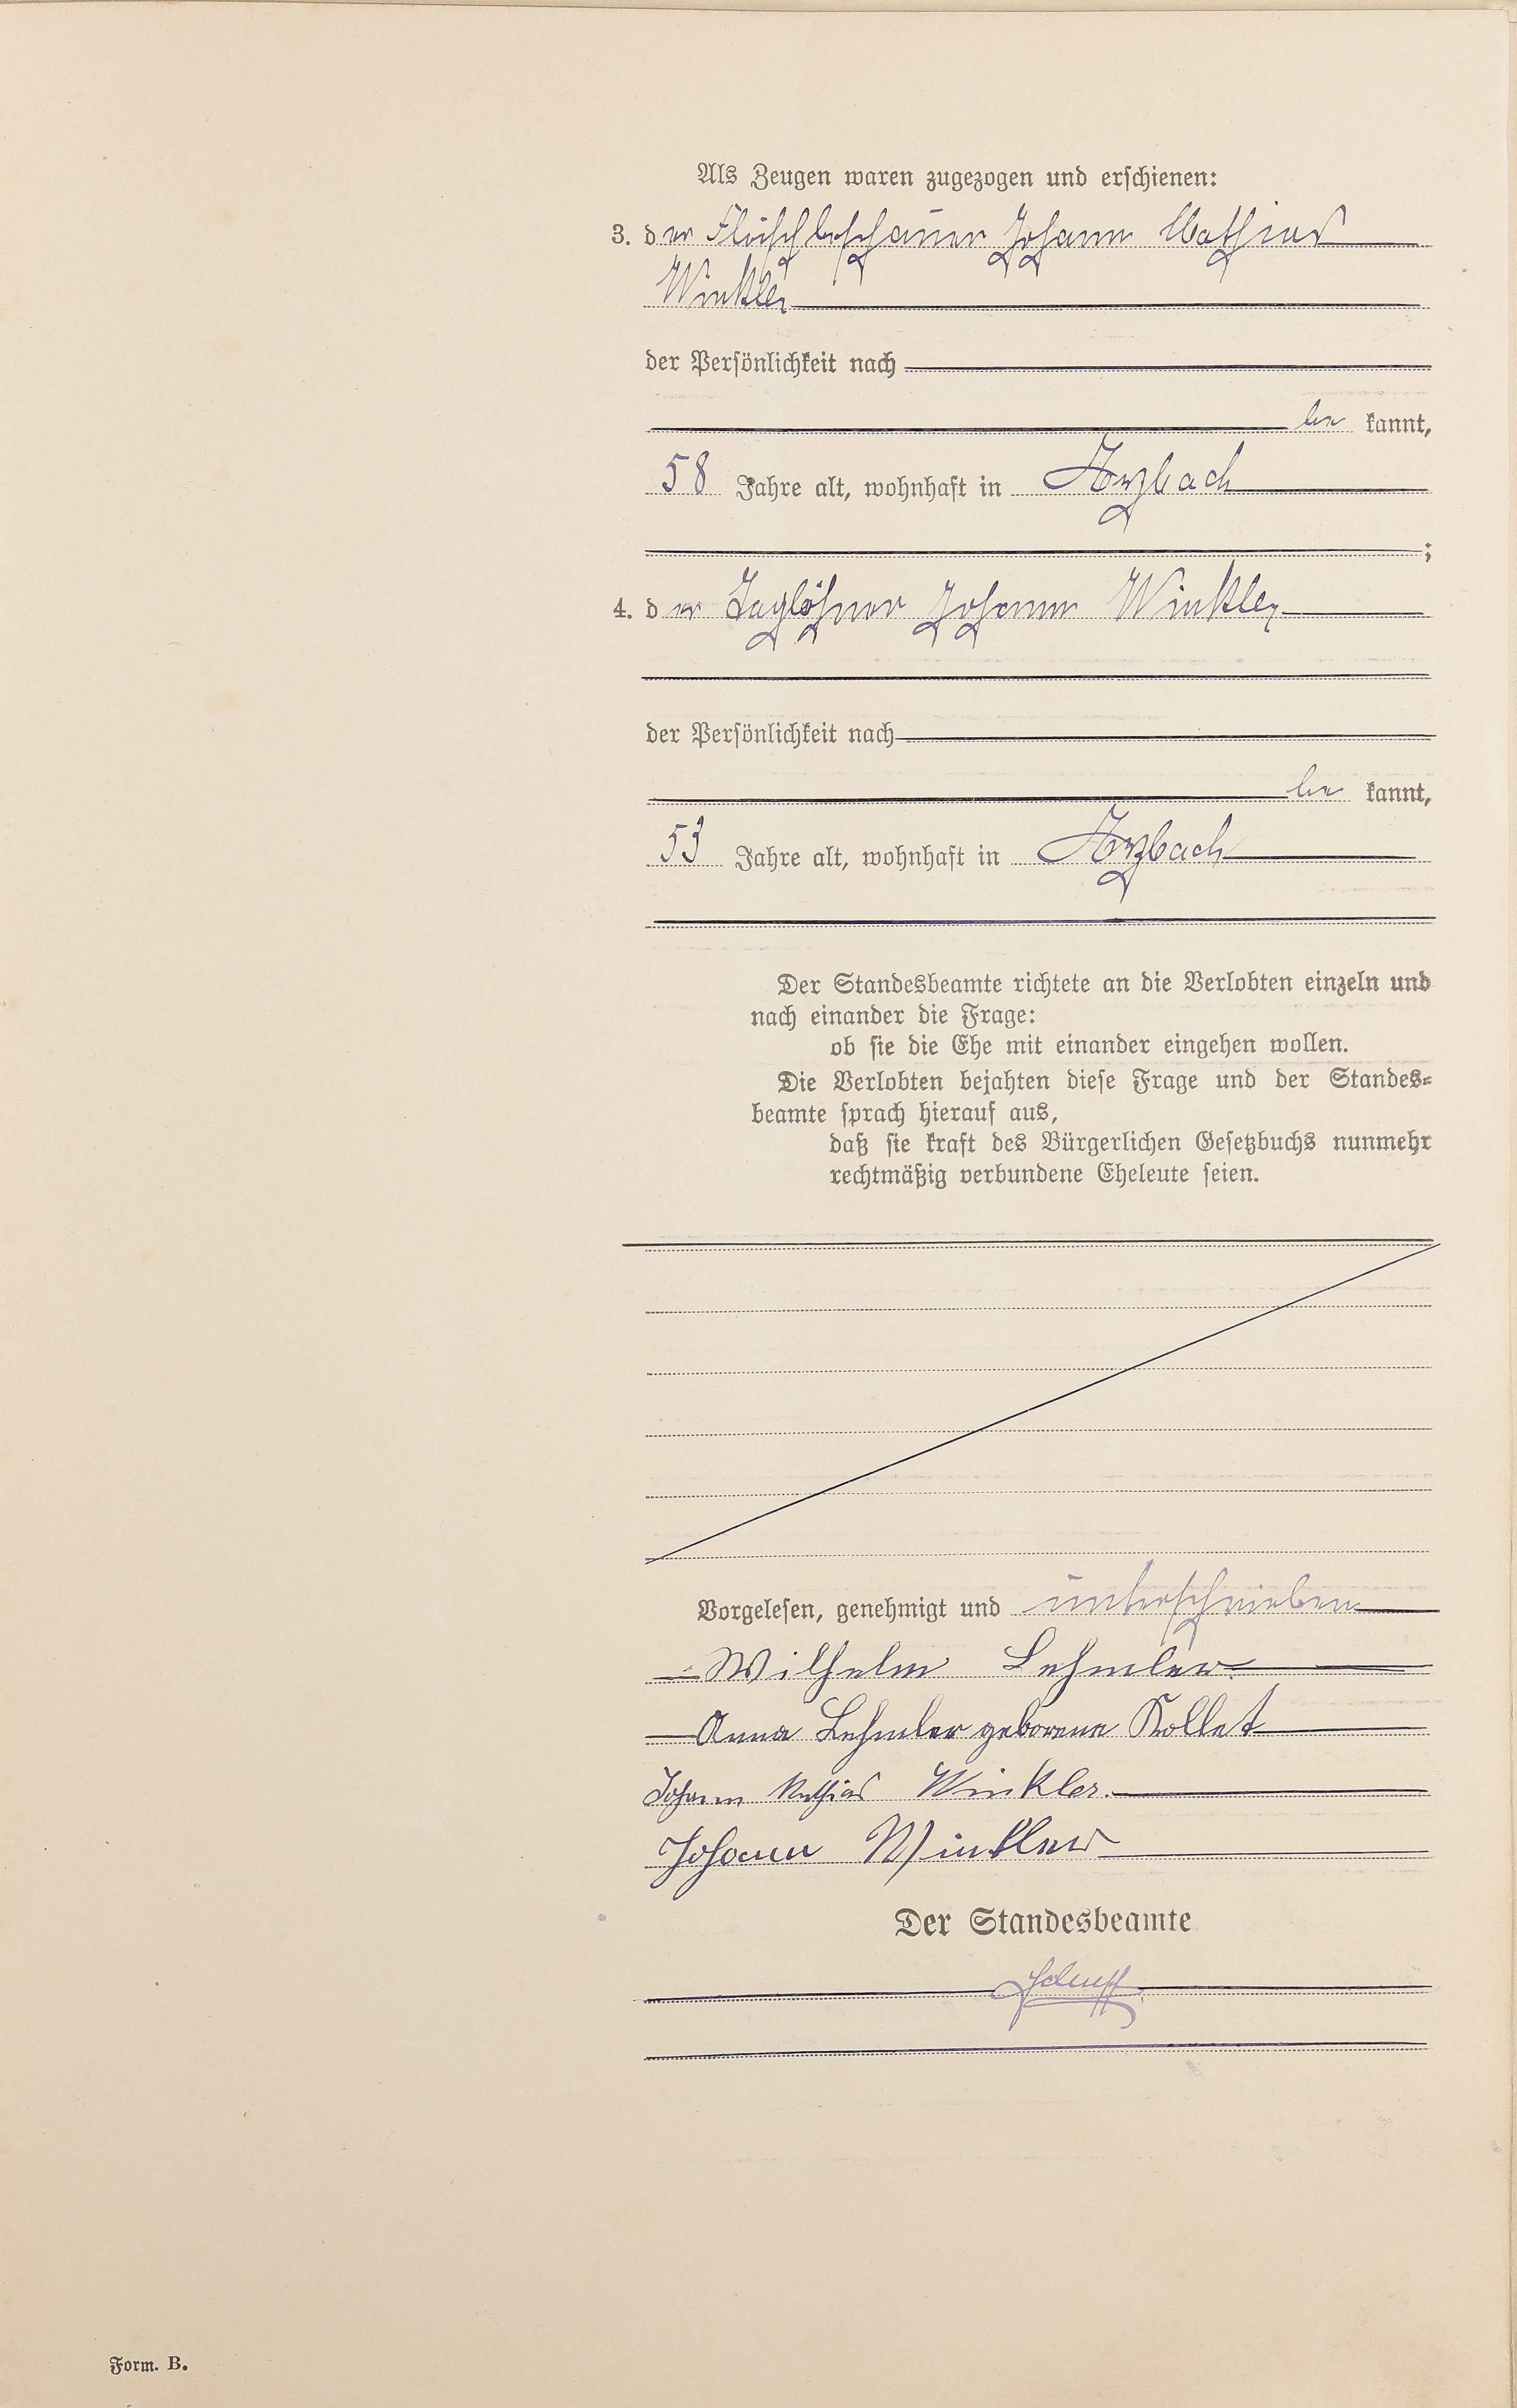 Als Zeugen waren zugezogen und erschienen:
3. der Fleischbeschauer Johann Mathias
Winkler
der Persönlichkeit nach
be kannt,
58 Jahre alt, wohnhaft in Arzbach
;
4. der Taglöhner Johann Winkler
der Persönlichkeit nach
be kannt,
53 Jahre alt, wohnhaft in Arzbach
Der Standesbeamte richtete an die Verlobten einzeln und
nach einander die Frage:
ob sie die Ehe mit einander eingehen wollen.
Die Verlobten bejahten diese Frage und der Standes-
beamte sprach hierauf aus,
daß sie kraft des Bürgerlichen Gesetzbuchs nunmehr
rechtmäßig verbundene Eheleute seien.
Vorgelesen, genehmigt und unterschrieben
Wilhelm Lehmler
Anna Lehmler geborene Kollet
Johann Mathias Winkler.
Johann Winkler
Der Standesbeamte
Form. B.